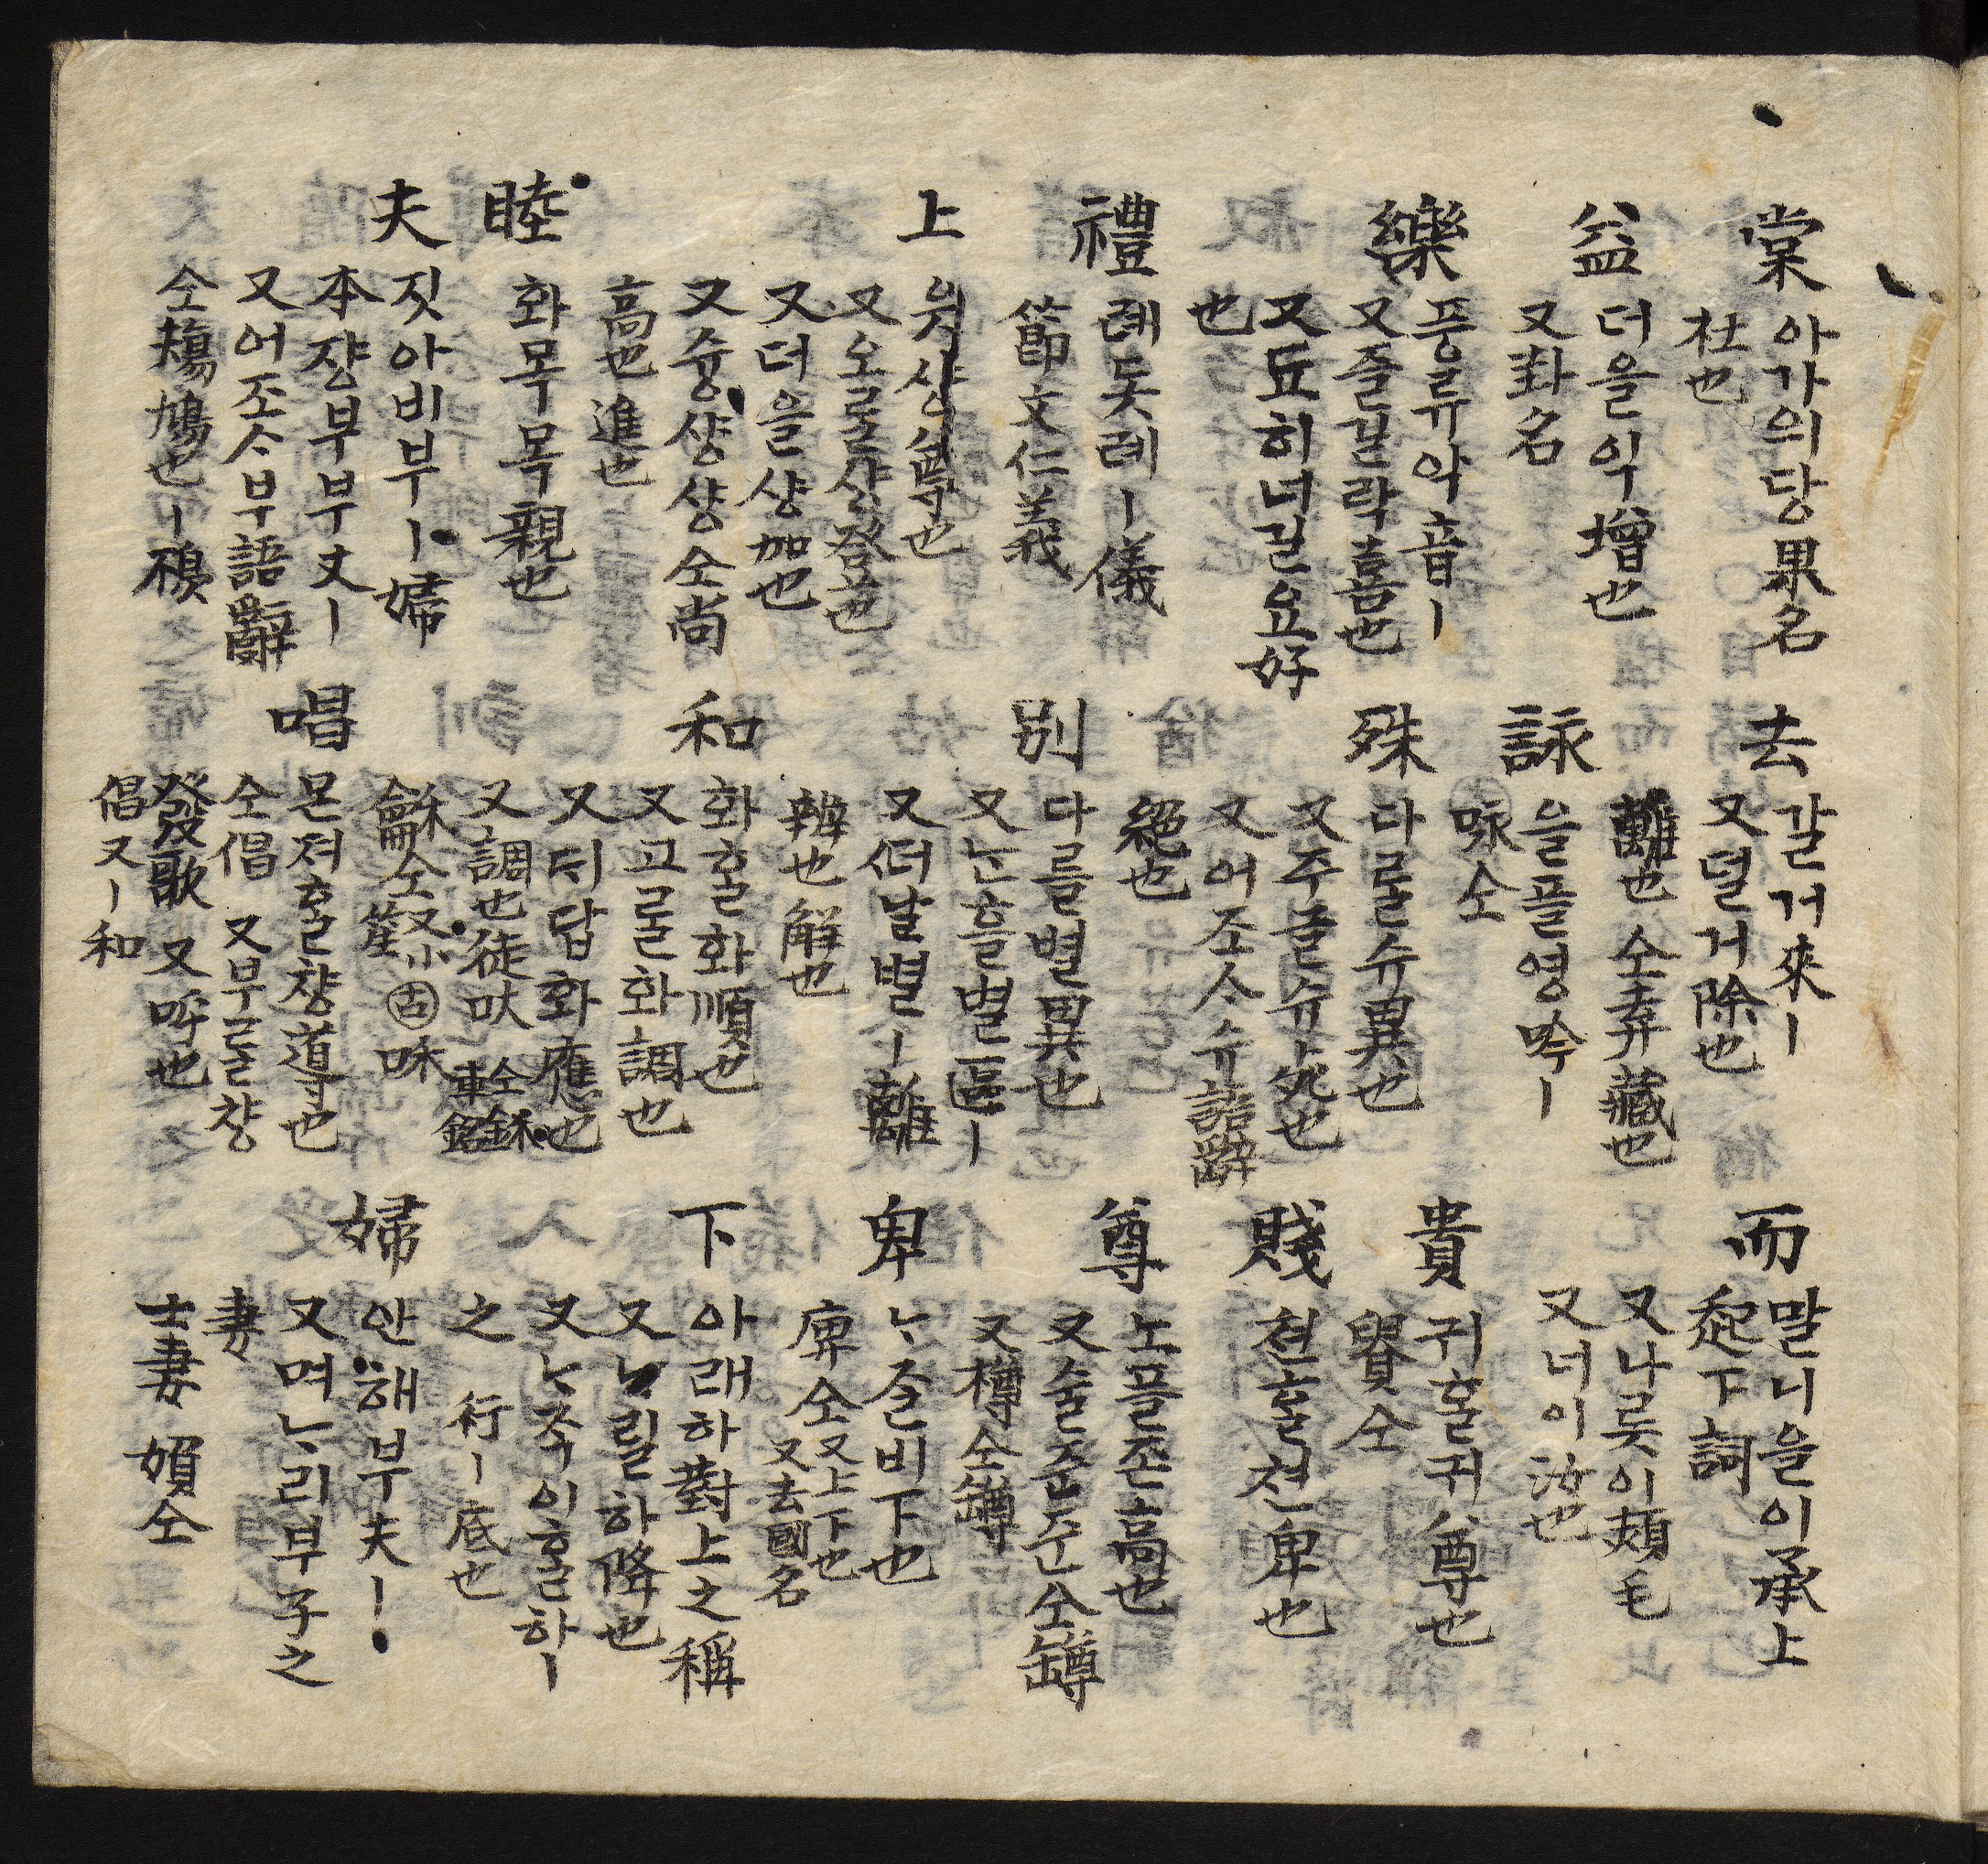 棠
아가의당果名
杜也
去
갈거來丨
又덜거除也
離也 仝弆藏也
而
말니을이承上
起下詞
又나롯이頬毛
又너이汝也
益
더을익增也
又卦名
詠
을플영吟丨
咏仝
樂
풍류악音丨
又즐길락喜也
又됴히녀길요好
也
殊
다ᄅᆞᆯ슈異也
又주글슈死也
又어조ᄉᆞ슈語辭
絕也
貴
귀ᄒᆞᆯ귀尊也
䝿仝
賤
쳔ᄒᆞᆯ쳔卑也
禮
례돗례丨儀
節文仁義
別
다를별異也
又ᄂᆞᆫ흘별區丨
又ᄯᅥ날별丨離
辨也解也
尊
노플존高也
又술준준仝罇
又樽仝鐏
卑
ᄂᆞ즐비下也
庳仝又上下也
又去國名
上
읫샹尊也
又오ᄅᆞᆯ샹登也
又더을샹加也
又슝샹샹仝尚
高也進也
和
화ᄒᆞᆯ화順也
又고ᄅᆞᆯ화調也
又ᄃᆡ답화應也
又調也徒吠
龢仝又小笙
㊉古咊
下
아래하對上之稱
又ᄂᆞ릴하降也
又ᄂᆞ즉이ᄒᆞᆯ하丨
之 行丨底也
睦
화목목親也
夫
짓아비부丨婦
本쟝부부丈丨
又어조ᄉᆞ부語辭
仝鳺鳩也丨䅡
唱
몬져ᄒᆞᆯ챵導也
仝倡 又부를챵
發歌 又呼也
倡又丨和
婦
안해부夫丨
又며ᄂᆞ리부子之
妻
士妻 媍仝